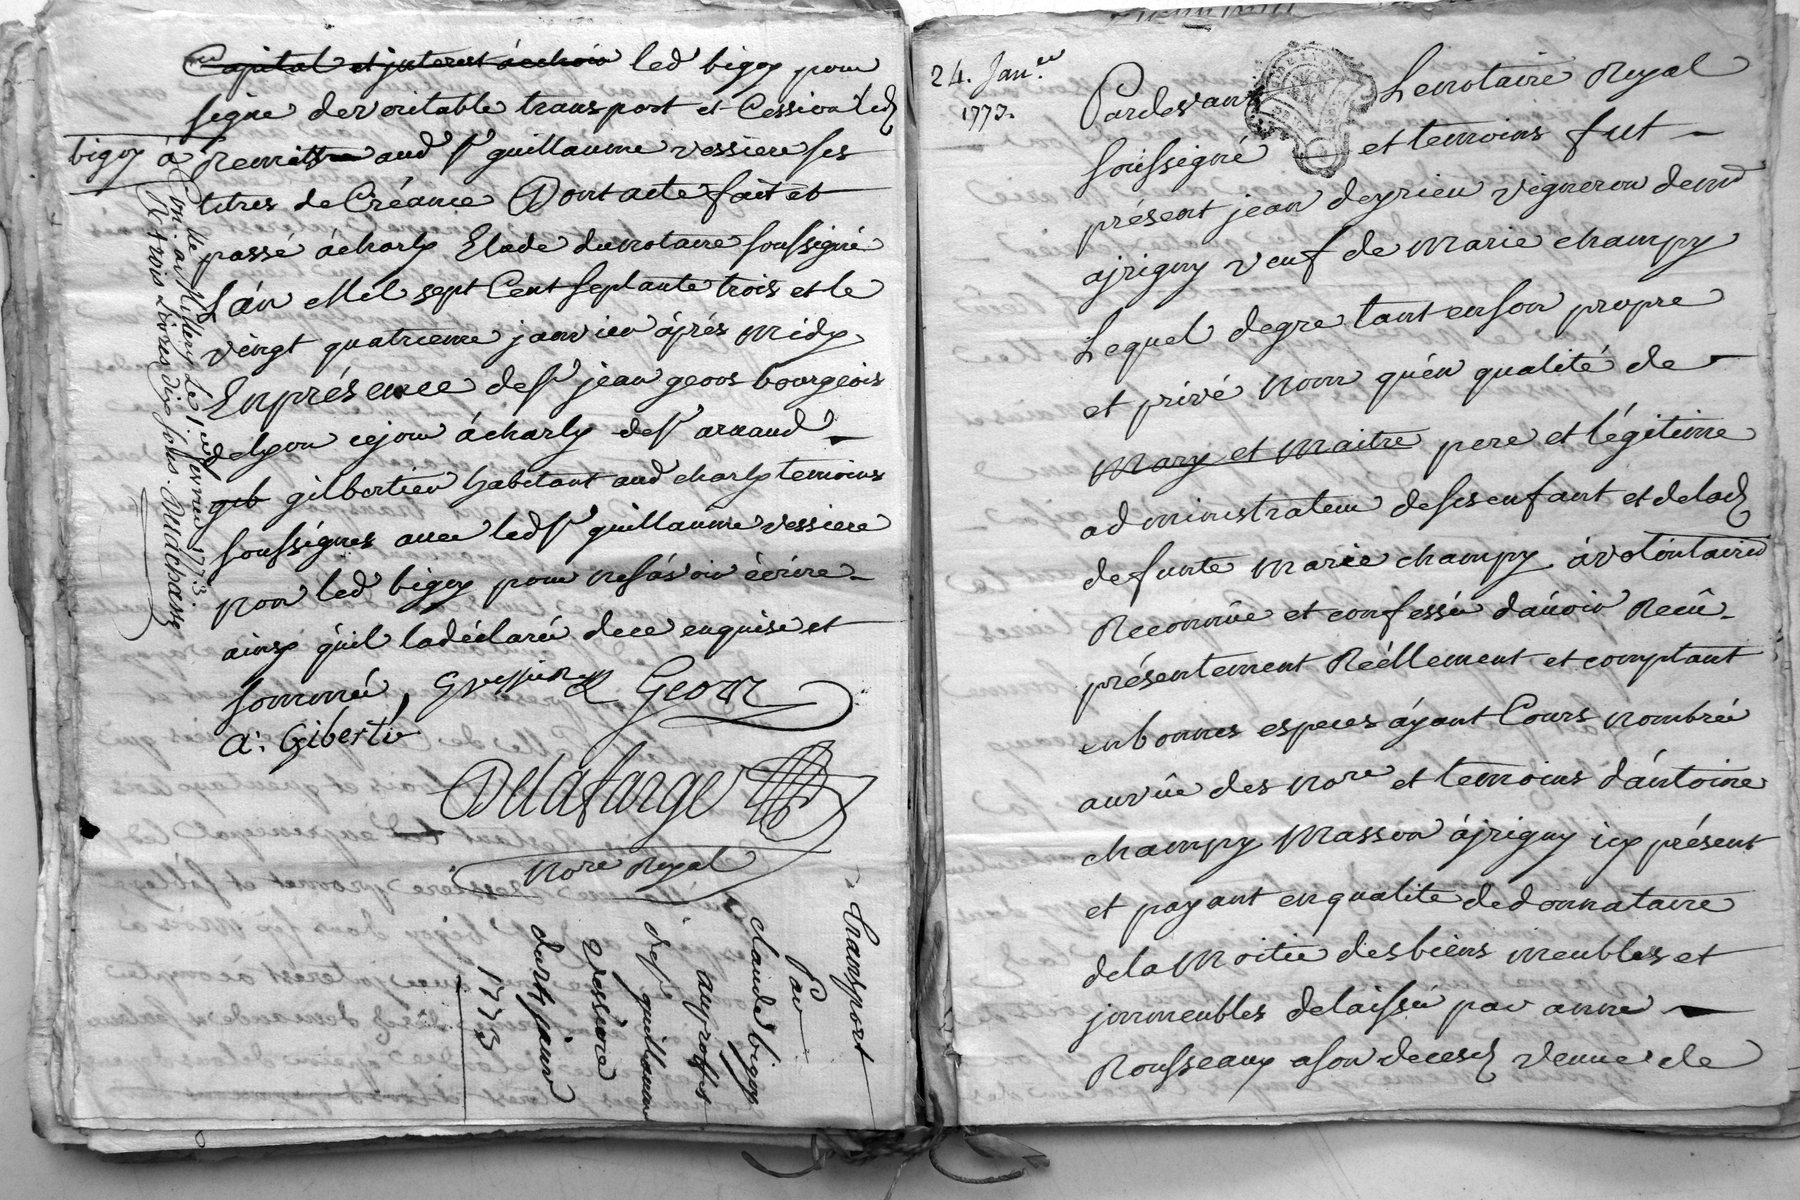 Capital et jnterest àechoir led bigoy pour
signe de veritable transport et Cession led
bigoy à Remettre aud Sr guillaume vessiere ses
titres de Créance Dont acte fait et
passé à charly Etude du notaire soussigné
L'án Mil sept Cent septante trois et le
vingt quatrieme janvier áprés midy
En présence de Sr jean geoos bourgeois
de lyon cejour á charly de Sr arnaud
gib gilbertier habitant aud charly temoins
soussignes avec led Sr guillaume vessiere
non led bigoy pour ne sávoir écrire
ainsy qúil la déclaré de ce enquise et
sommé, G vessiere Geoos
a: Giberti
Delafarge
Nore Royal
Con.llé à Millery Le 1er fevrier 1773
R trois Livres dix sols. Deldechaise
transport
Par
claude bigoy
au profit
de Sr guillaume
vessiere
du 24 janvr
1773
24. Jan.er
1773.
Pardevant Le notaire Royal
soussigné et temoins fut
présent jean deyrieu vigneron demt
ajrigny veuf de marie champy
Lequel de gre tant en son propre
et privé nom qúen qualité de
mary et maitre pere et légitime
administrateur de ses enfant et de lad
defunte marie champy á volontaire
Reconnûe et confessée dáuoir Reçû
présentement Réellement et comptant
en bonnes especes áyant Cours nombrée
au vûe des nore et temoins dántoine
champy masson ájrigny icy présent
et payant en qualité de donnataire
de la moitie des biens meubles et
jmmeubles delaissée par anne
Rousseaux a son deces veuve de